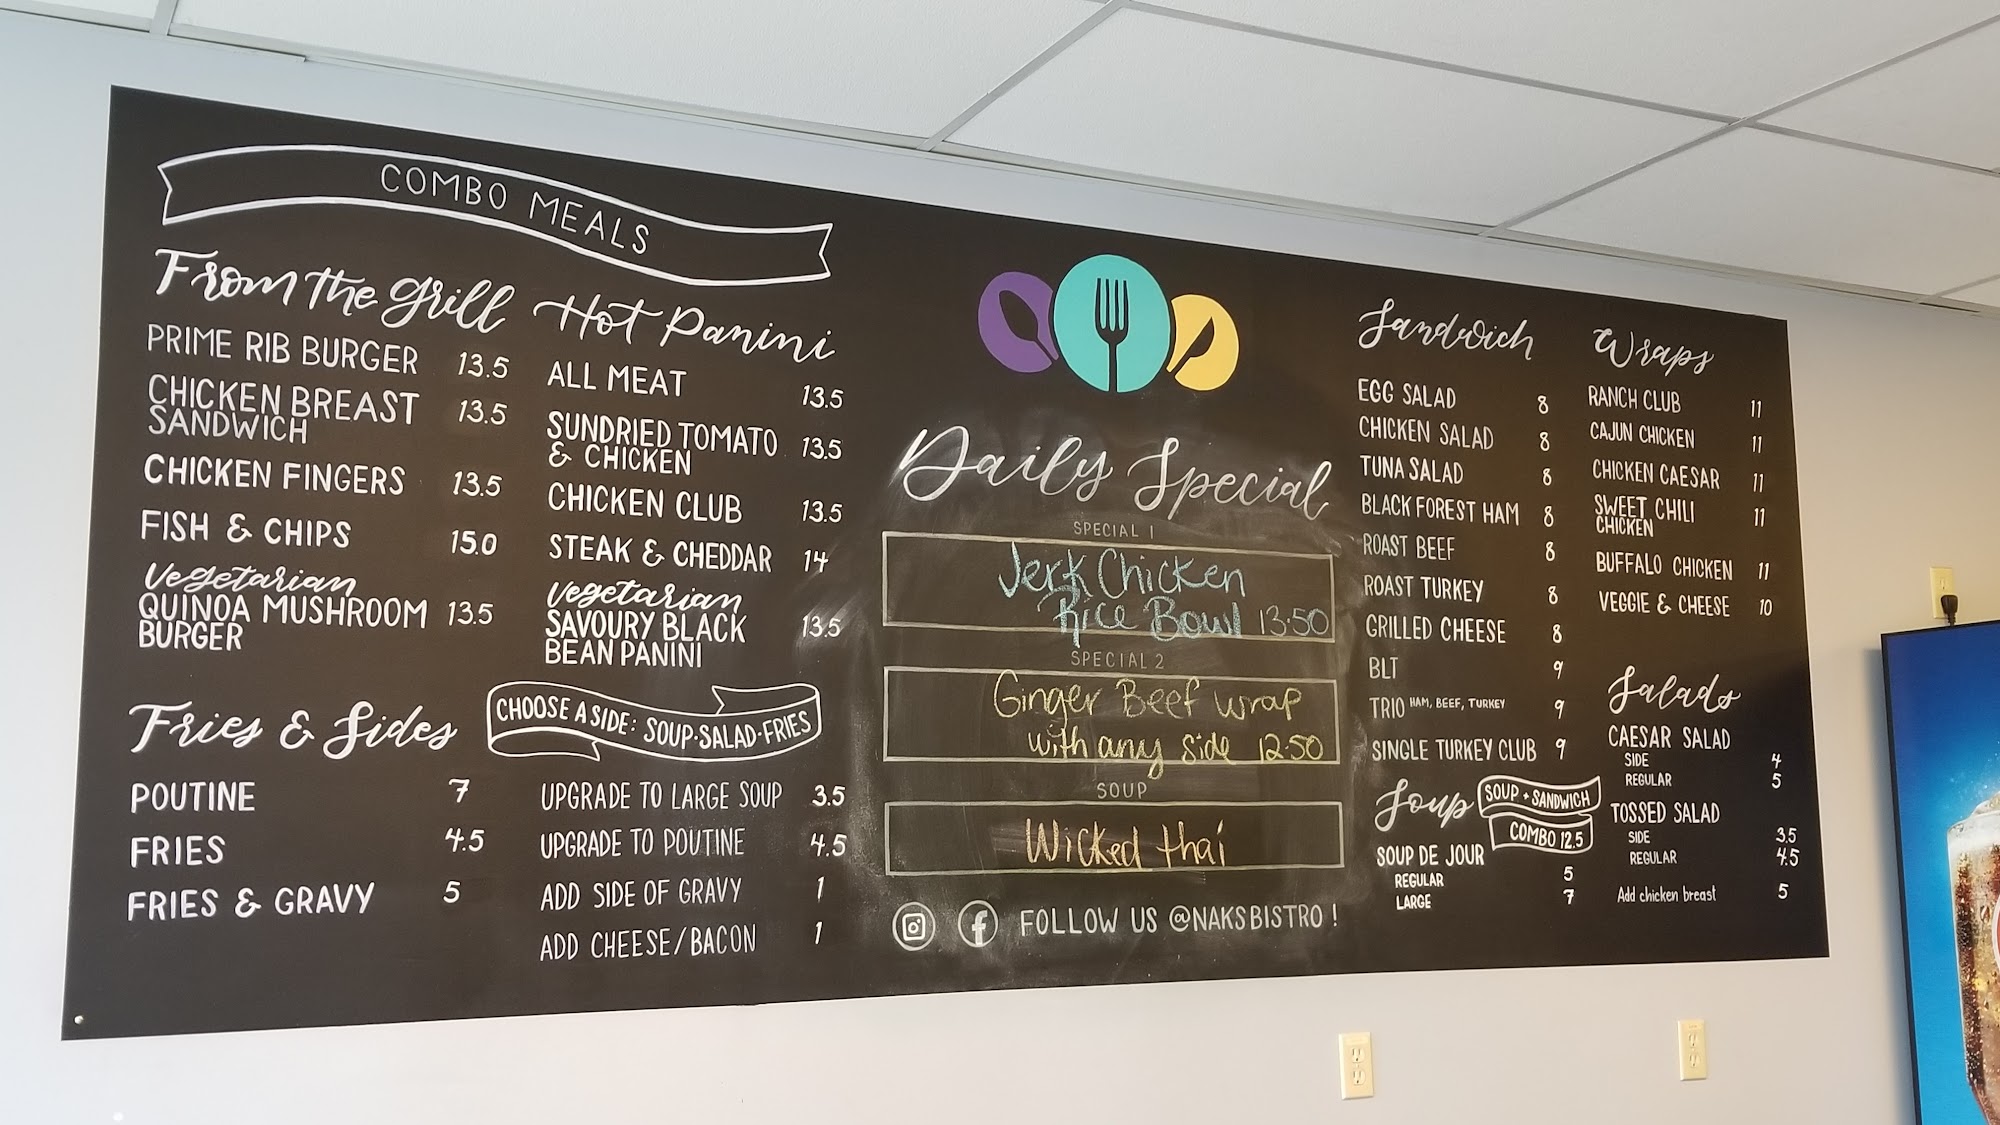 COMBO MEALS
From the Grill
PRIME RIB BURGER 13.5
CHICKEN BREAST
SANDWICH 13.5
CHICKEN FINGERS 13.5
FISH & CHIPS 15.0
Vegetarian
QUINOA MUSHROOM 13.5
BURGER
Hot Panini
ALL MEAT 13.5
SUNDRIED TOMATO
& CHICKEN 13.5
CHICKEN CLUB 13.5
STEAK & CHEDDAR 14
Vegetarian
SAVOURY BLACK 13.5
BEAN PANINI
Fries & Sides
POUTINE 7
FRIES 4.5
FRIES & GRAVY 5
CHOOSE A SIDE: SOUP·SALAD·FRIES
UPGRADE TO LARGE SOUP 3.5
UPGRADE TO POUTINE 4.5
ADD SIDE OF GRAVY 1
ADD CHEESE/BACON 1
Daily Special
SPECIAL 1
Jerk Chicken
Rice Bowl 13.50
SPECIAL 2
Ginger Beef wrap
with any side 12.50
SOUP
Wicked thai
FOLLOW US @NAKSBISTRO!
Sandwich
EGG SALAD 8
CHICKEN SALAD 8
TUNA SALAD 8
BLACK FOREST HAM 8
ROAST BEEF 8
ROAST TURKEY 8
GRILLED CHEESE 8
BLT 9
TRIO HAM, BEEF, TURKEY 9
SINGLE TURKEY CLUB 9
Soup
SOUP + SANDWICH
COMBO 12.5
SOUP DE JOUR
REGULAR 5
LARGE 7
Wraps
RANCH CLUB 11
CAJUN CHICKEN 11
CHICKEN CAESAR 11
SWEET CHILI 11
CHICKEN
BUFFALO CHICKEN 11
VEGGIE & CHEESE 10
Salads
CAESAR SALAD
SIDE 4
REGULAR 5
TOSSED SALAD
SIDE 3.5
REGULAR 4.5
Add chicken breast 5